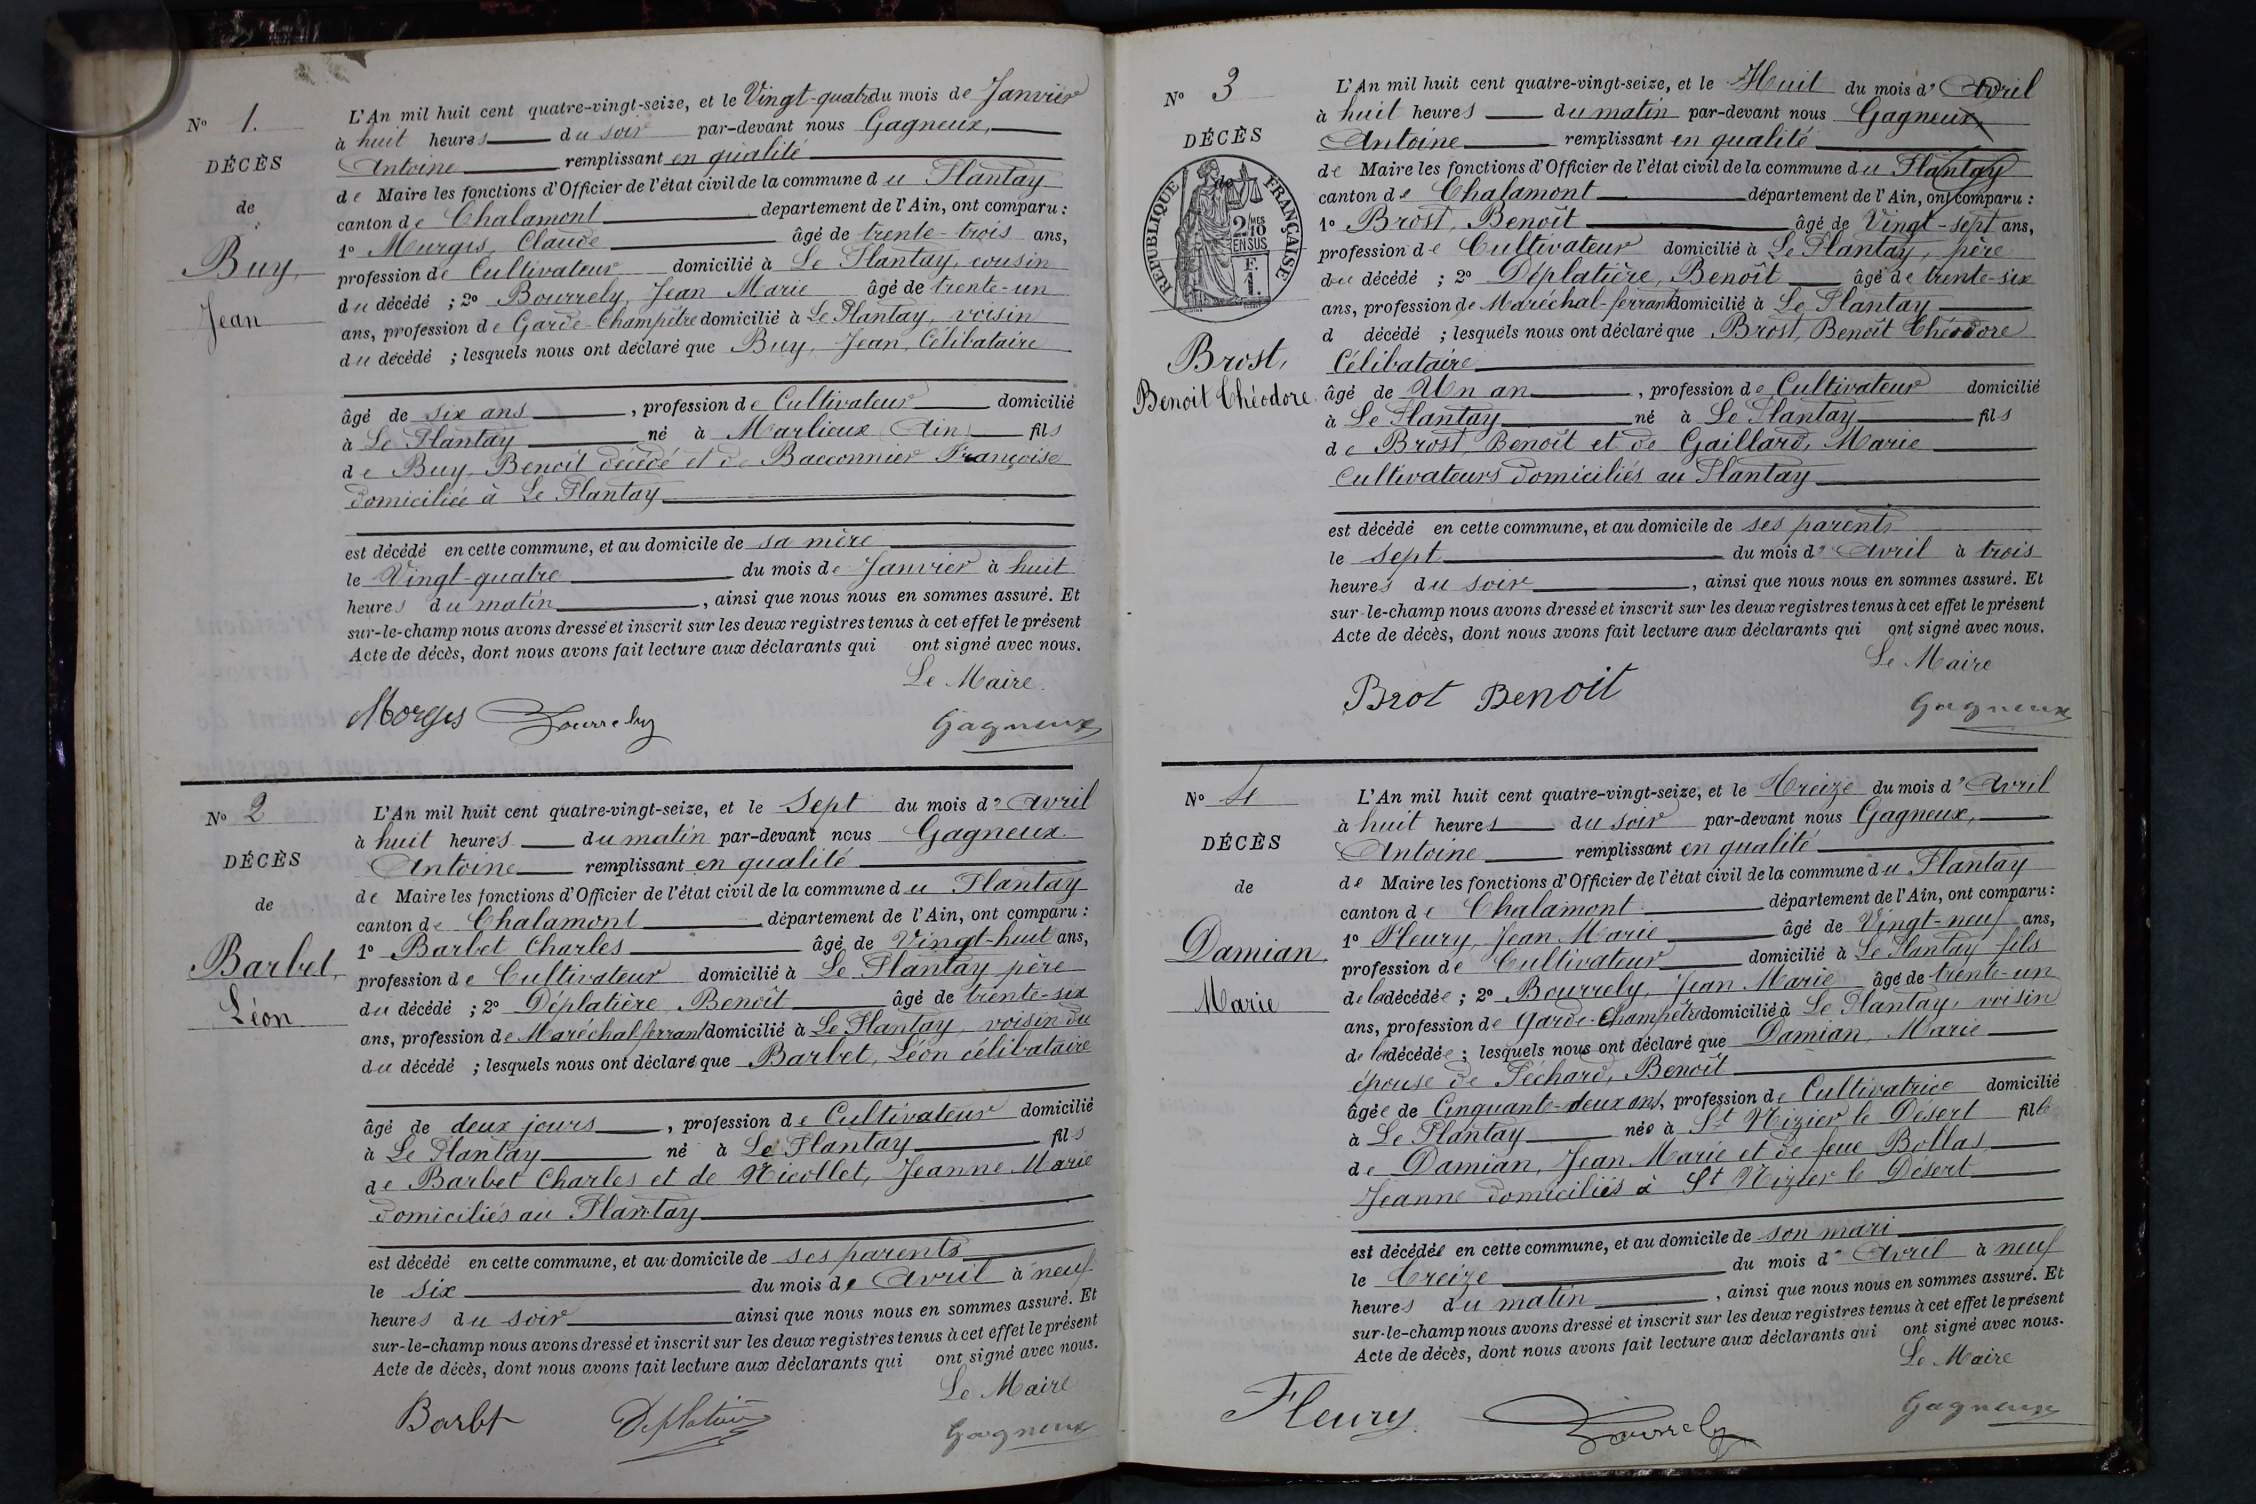 N° 1.
DÉCÈS
de
Buy,
Jean
L'An mil huit cent quatre-vingt-seize, et le Vingt-quatre du mois de Janvier
à huit heures du soir par-devant nous Gagneux,
Antoine remplissant en qualité
de Maire les fonctions d'Officier de l'état civil de la commune du Plantay
canton de Chalamont département de l'Ain, ont comparu :
1° Murgis, Claude âgé de trente-trois ans,
profession de Cultivateur domicilié à Le Plantay, cousin
du décédé ; 2° Bourrely, Jean Marie âgé de trente-un
ans, profession de Garde-Champêtre domicilié à Le Plantay, voisin
du décédé ; lesquels nous ont déclaré que Buy, Jean, Célibataire
âgé de six ans, profession de Cultivateur domicilié
à Le Plantay né à Marlieux (Ain) fils
de Buy, Benoît décédé et de Bacconnier Françoise
domiciliée à Le Plantay
est décédé en cette commune, et au domicile de sa mère
le Vingt-quatre du mois de Janvier à huit
heures du matin, ainsi que nous nous en sommes assuré. Et
sur-le-champ nous avons dressé et inscrit sur les deux registres tenus à cet effet le présent
Acte de décès, dont nous avons fait lecture aux déclarants qui ont signé avec nous.
Le Maire.
Morgis Bourrely Gagneux
N° 2
DÉCÈS
de
Barbet,
Léon
L'An mil huit cent quatre-vingt-seize, et le Sept du mois d' Avril
à huit heures du matin par-devant nous Gagneux
Antoine remplissant en qualité
de Maire les fonctions d'Officier de l'état civil de la commune du Plantay
canton de Chalamont département de l'Ain, ont comparu :
1° Barbet Charles âgé de Vingt-huit ans,
profession de Cultivateur domicilié à Le Plantay père
du décédé ; 2° Déplatière Benoît âgé de trente-six
ans, profession de Maréchal ferrant domicilié à Le Plantay, voisin du
du décédé ; lesquels nous ont déclaré que Barbet, Léon célibataire
âgé de deux jours, profession de Cultivateur domicilié
à Le Plantay né à Le Plantay fils
de Barbet Charles et de Nicollet, Jeanne Marie
domiciliés au Plantay
est décédé en cette commune, et au domicile de ses parents
le six du mois de Avril à neuf
heures du soir ainsi que nous nous en sommes assuré. Et
sur-le-champ nous avons dressé et inscrit sur les deux registres tenus à cet effet le présent
Acte de décès, dont nous avons fait lecture aux déclarants qui ont signé avec nous.
Le Maire
Barbt Deplatière Gagneux
N° 3
DÉCÈS
de
RÉPUBLIQUE FRANÇAISE
2/10 MES
EN SUS
F.
1.
Brost,
Benoit Théodore
L'An mil huit cent quatre-vingt-seize, et le Huit du mois d' Avril
à huit heures du matin par-devant nous Gagneux,
Antoine remplissant en qualité
de Maire les fonctions d'Officier de l'état civil de la commune du Plantay
canton de Chalamont département de l'Ain, ont comparu :
1° Brost, Benoît âgé de Vingt-sept ans,
profession de Cultivateur domicilié à Le Plantay, père
du décédé ; 2° Déplatière, Benoît âgé de trente-six
ans, profession de Maréchal-ferrant domicilié à Le Plantay
d décédé ; lesquels nous ont déclaré que Brost, Benoît Théodore
Célibataire
âgé de Un an, profession de Cultivateur domicilié
à Le Plantay né à Le Plantay fils
de Brost, Benoît et de Gaillard, Marie
cultivateurs domiciliés au Plantay
est décédé en cette commune, et au domicile de ses parents
le sept du mois d' Avril à trois
heures du soir, ainsi que nous nous en sommes assuré. Et
sur-le-champ nous avons dressé et inscrit sur les deux registres tenus à cet effet le présent
Acte de décès, dont nous avons fait lecture aux déclarants qui ont signé avec nous.
Le Maire
Brot Benoit Gagneux
N° 4
DÉCÈS
de
Damian,
Marie
L'An mil huit cent quatre-vingt-seize, et le Treize du mois d' Avril
à huit heures du soir par-devant nous Gagneux,
Antoine remplissant en qualité
de Maire les fonctions d'Officier de l'état civil de la commune du Plantay
canton de Chalamont département de l'Ain, ont comparu :
1° Fleury, Jean Marie âgé de Vingt-neuf ans,
profession de Cultivateur domicilié à Le Plantay fils
de la décédée ; 2° Bourrely, Jean Marie âgé de trente-un
ans, profession de Garde-Champêtre domicilié à Le Plantay, voisin
de la décédée ; lesquels nous ont déclaré que Damian, Marie
épouse de Péchard, Benoît
âgée de Cinquante-deux ans, profession de Cultivatrice domicilié
à Le Plantay née à St Nizier le Désert fille
de Damian, Jean Marie et de feue Bollas,
Jeanne domiciliés à St Nizier le Désert
est décédée en cette commune, et au domicile de son mari
le Treize du mois d' Avril à neuf
heures du matin, ainsi que nous nous en sommes assuré. Et
sur-le-champ nous avons dressé et inscrit sur les deux registres tenus à cet effet le présent
Acte de décès, dont nous avons fait lecture aux déclarants qui ont signé avec nous.
Le Maire
Fleury Bourrely Gagneux